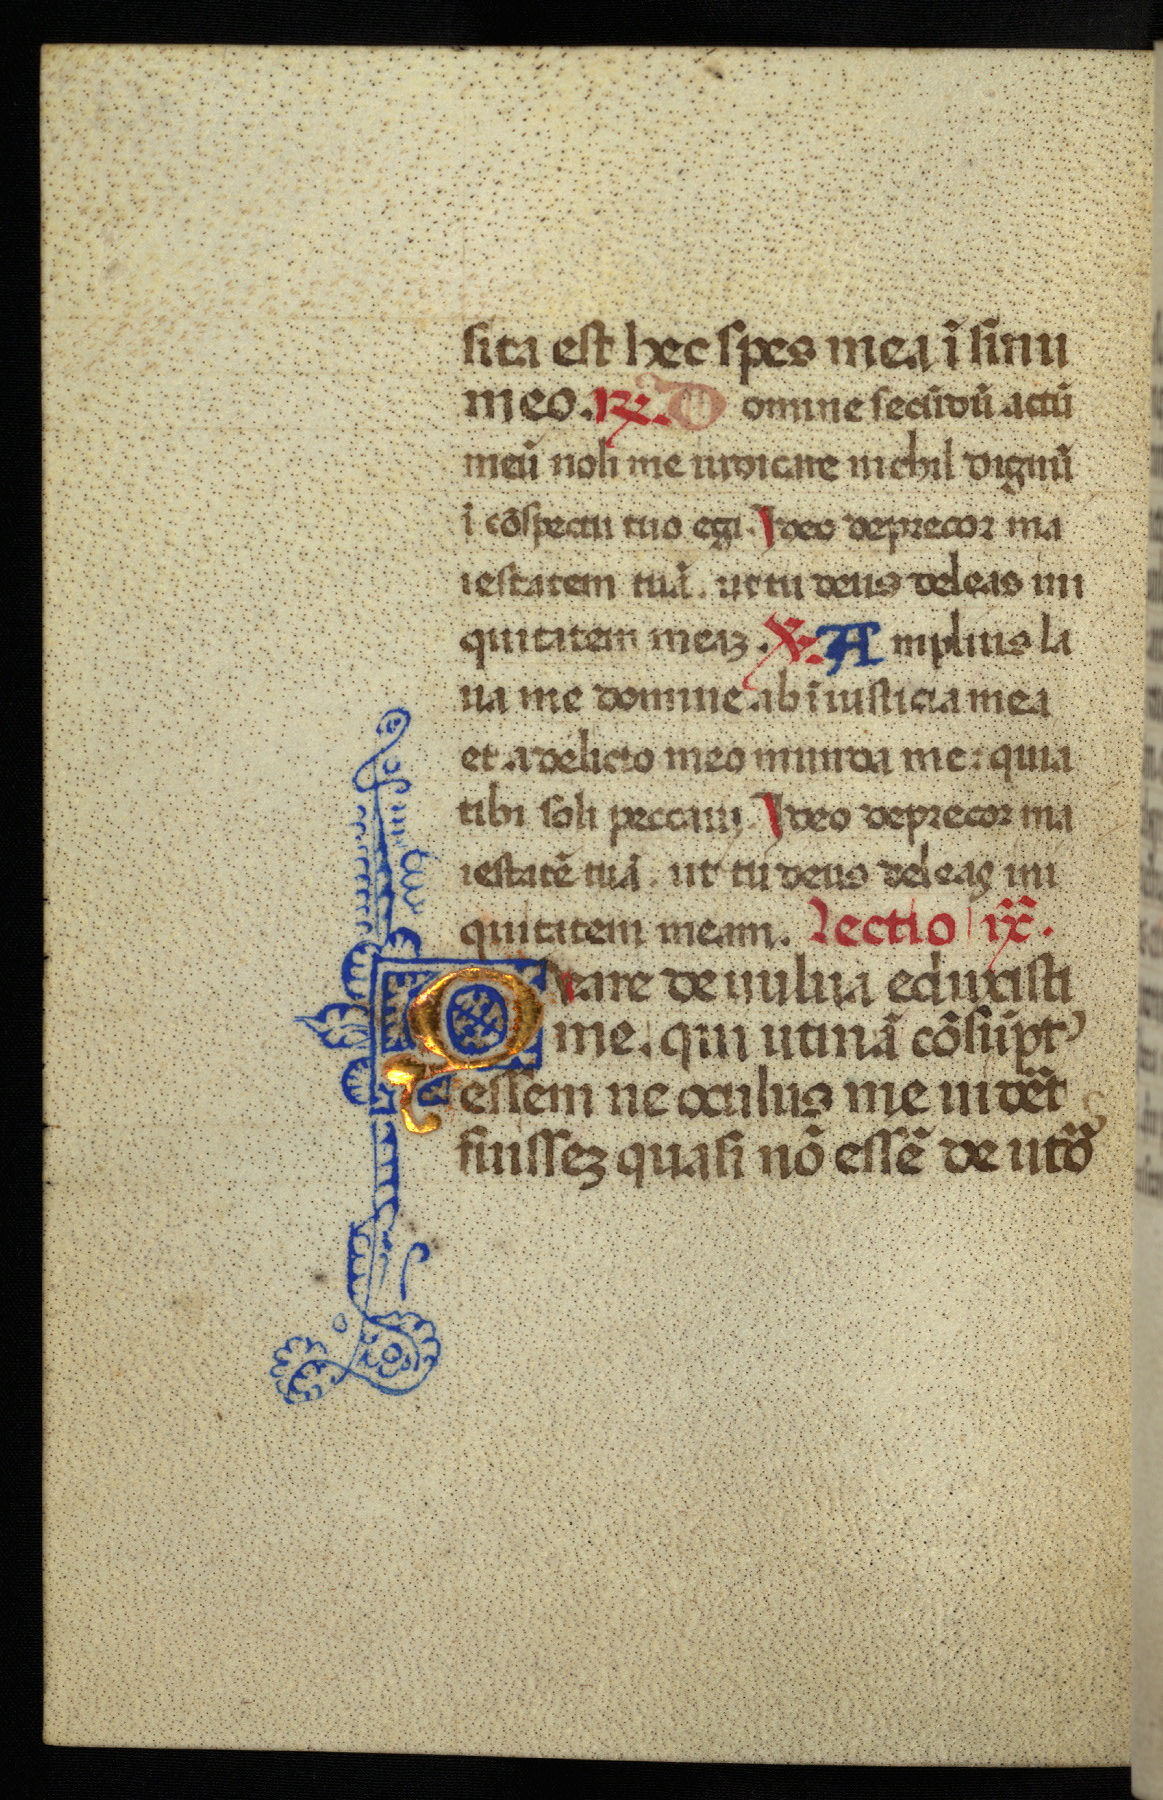 sita est hec spes mea ī sinu
meo. ℟. Domine secūdū actū
meū noli me iudicare nichil dignū
ī cōspectu tuo egi. Ideo deprecor ma
iestatem tuā. ut tu deus deleas ini
quitatem meaꝫ. ℣. Amplius la
ua me domine ab iniusticia mea
et a delicto meo munda me: quia
tibi soli peccaui. Ideo deprecor ma
iestatē tuā. ut tu deus deleas ini
quitatem meam. Lectio ix.
Quare de uulua eduxisti
me. qui utinā cōsūpt⁹
essem ne oculus me uidēt
fuisseꝫ quasi nō essē de utō